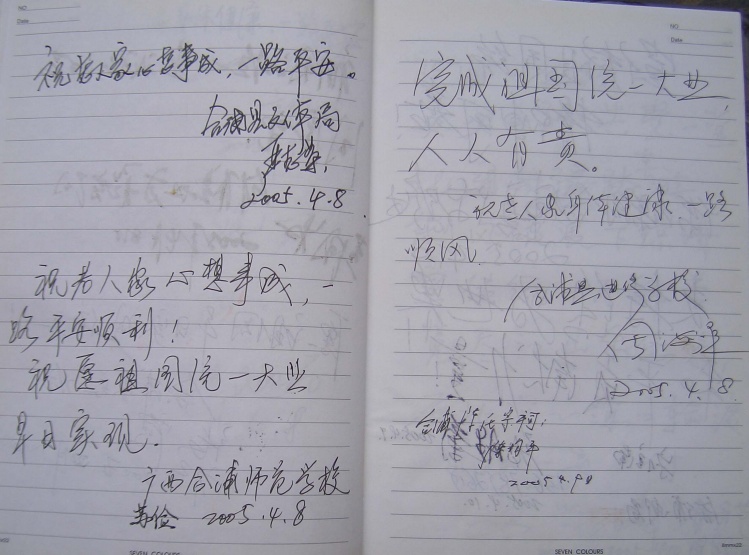 NO
Date
祝老人家心想事成，一路平安。
合浦县文体局
2005.4.8
祝老人家心想事成，一
路平安顺利！
祝愿祖国统一大业
早日实现．
广西合浦师范学校
苏俭 2005.4.8
SEVEN COLOURS
NO
Date
完成祖国统一大业，
人人有责。
祝老人家身体健康 一路
顺风．
合浦县进修学校
2005.4.8
2005
SEVEN COLOURS